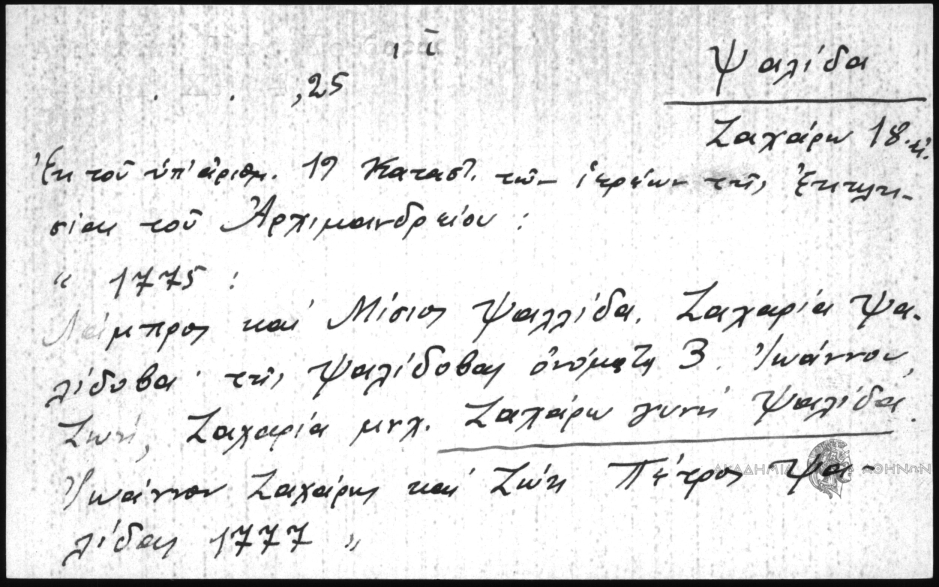 ,25
Ψαλίδα
Ζαχάρω 18.αἰ.
Ἐκ τοῦ ὑπ' ἀριθμ. 19 Καταστ. τῶν ἱερέων τῆς Ἐκκλη-
σίας τοῦ Ἀρχιμανδρείου :
" 1775 :
Λάμπρος καὶ Μίσιος Ψαλλίδα. Ζαχαρία Ψα-
λίδοβα· τῆς Ψαλίδοβας ὀνόματα 3. Ἰωάννου,
Ζωή, Ζαχαρία μνχ. Ζαχάρω γυνή Ψαλίδα.
Ἰωάννου Ζαχάρης καὶ Ζώη Πέτρος Ψα-
λίδας 1777 "
ΑΚΑΔΗΜΙΑ ΑΘΗΝΩΝ